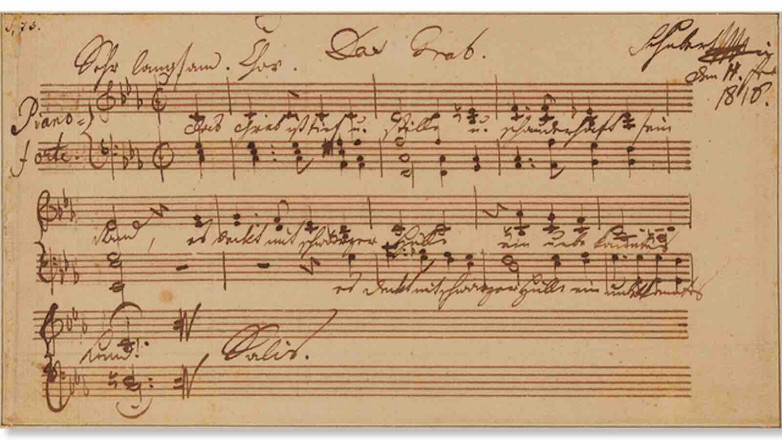 Sehr langsam. Chor. Das Grab.
den 11. Feb
1816.
Piano-
forte.
das Grab ist tief u. stille u. schauderhaft sein
Rand, es deckt mit schwarzer Hülle ein unbekanntes
es deckt mit schwarzer Hülle ein unbekanntes
Land.
Salis.